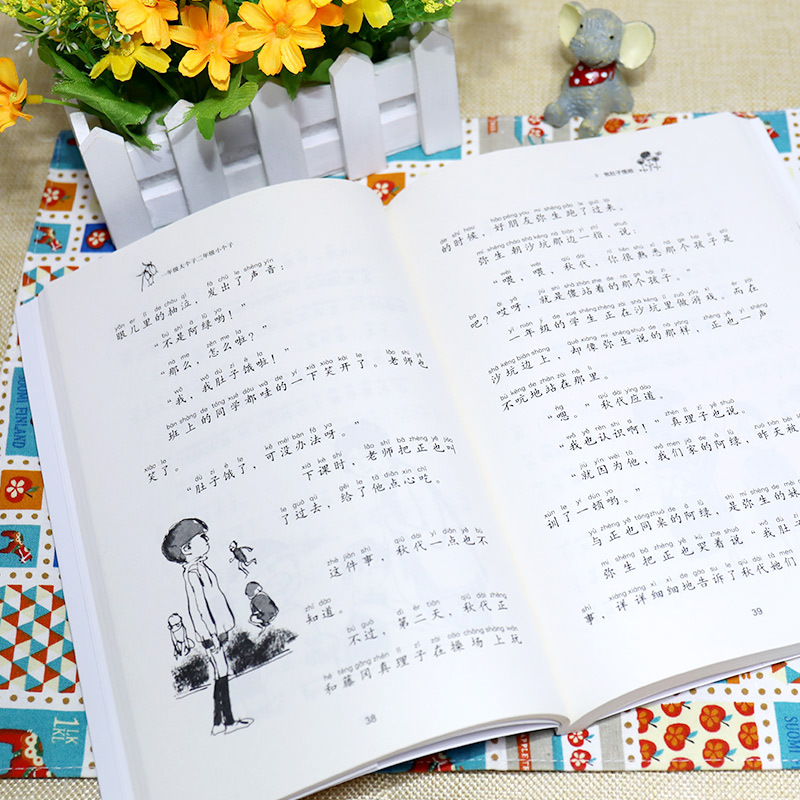 一年级大个子二年级小个子
yǎn er lǐ de chōu qì fā chū le shēng yīn
眼儿里的抽泣，发出了声音：
bú shì ā lǜ yo
“不是阿绿哟！”
nà me zěn me la
“那么，怎么啦？”
wǒ wǒ dù zi è la
“我，我肚子饿啦！”
bān shàng de tóng xué dōu wā de yí xià xiào kāi le lǎo shī yě
班上的同学都哇的一下笑开了。老师也
xiào le
笑了。
dù zi è le kě méi bàn fǎ ya
“肚子饿了，可没办法呀。”
xià kè shí lǎo shī bǎ zhèng yě jiào
下课时，老师把正也叫
le guò qù gěi le tā diǎn xin chī
了过去，给了他点心吃。
zhè jiàn shì qiū dài yì diǎn yě bù
这件事，秋代一点也不
zhī dào
知道。
bú guò dì èr tiān qiū dài zhèng
不过，第二天，秋代正
hé téng gāng zhēn lǐ zǐ zài cāo chǎng shàng wán
和藤冈真理子在操场上玩
38
5 饿肚子情题
de shí hou hǎo péng you mí shēng pǎo le guò lái
的时候，好朋友弥生跑了过来。
mí shēng cháo shā kēng nà biān yì zhǐ shuō
弥生朝沙坑那边一指，说：
wèi wèi qiū dài nǐ hěn shú xī nà ge hái zi shì
“喂，喂，秋代，你很熟悉那个孩子是
ba āi yā jiù shì shǎ zhàn zhe de nà ge hái zi
吧？哎呀，就是傻站着的那个孩子。”
yī nián jí de xué sheng zhèng zài shā kēng lǐ zuò yóu xì ér zài
一年级的学生正在沙坑里做游戏。而在
shā kēng biān shàng què xiàng mí shēng shuō de nà yàng zhèng yě yì shēng
沙坑边上，却像弥生说的那样，正也一声
bù kēng de zhàn zài nà lǐ
不吭地站在那里。
ǹg qiū dài yìng dào
“嗯。”秋代应道。
wǒ yě rèn shi a zhēn lǐ zǐ yě shuō
“我也认识啊！”真理子也说。
jiù yīn wèi tā wǒ men jiā de ā lǜ zuó tiān bèi
“就因为他，我们家的阿绿，昨天被
xùn le yí dùn yo
训了一顿哟。”
yǔ zhèng yě tóng zhuō de ā lǜ shì mí shēng de mèi
与正也同桌的阿绿，是弥生的妹
mí shēng bǎ zhèng yě xiào zhe shuō wǒ dù zi
弥生把正也笑着说“我肚子
shì xiáng xiáng xì xì de gào su le qiū dài tā men
事，详详细细地告诉了秋代她们
39
SUOMI FINLAND
1LK
1KL
SUOMI